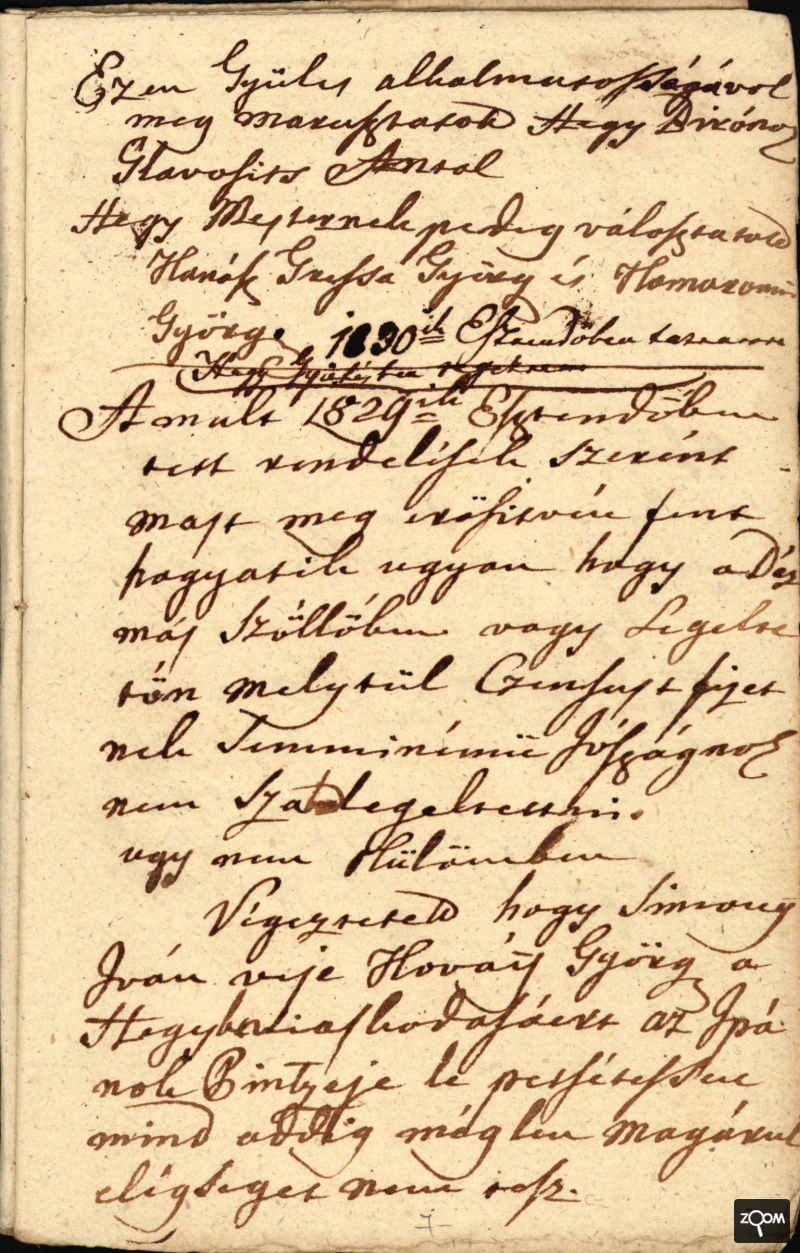 Ezen Gyülés alkalmatosságával
meg marasztatott Hegy Birónak
Glavosits Antal
Hegy Mesternek pedig választatott
Hanás Gressa György és
György. 1830ik Esztendőben tartatott
Hegy Gyülésben
A mult 1829ik Esztendőben
tett rendelések szerént
most meg erősitvén fent
hagyatik ugyan hogy a Déz
más Szőllőben vagy Legelte
tőn melytül Czensust fizet
nek Semminémü Jószágnak
nem Szabad legeltettni.
ugy nem Külömben
Végeztetett hogy Simony
Iván veje Kováts György a
az Ipá
nak Pintzeje le petsételtessen
mind addig még len Magárul
elégséget nem tesz.
7
ZOOM